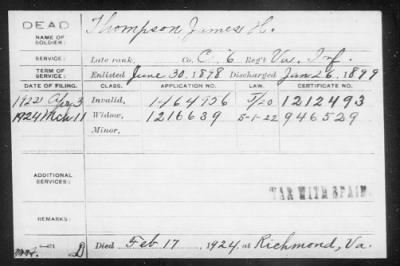 DEAD
NAME OF SOLDIER: Thompson James H.
SERVICE: Late rank, Co. C. 6 Reg't Va. Inf.
TERM OF SERVICE: Enlisted June 30, 1898 Discharged Jan 26, 1899
DATE OF FILING. CLASS. APPLICATION NO. LAW. CERTIFICATE NO.
1922 Apr 3 Invalid, 1464956 5/20 1212493
1924 Mch 11 Widow, 1216639 5-1-22 946529
Minor,
ADDITIONAL SERVICES:
WAR WITH SPAIN.
REMARKS:
D Died Feb 17, 1924 at Richmond, Va.